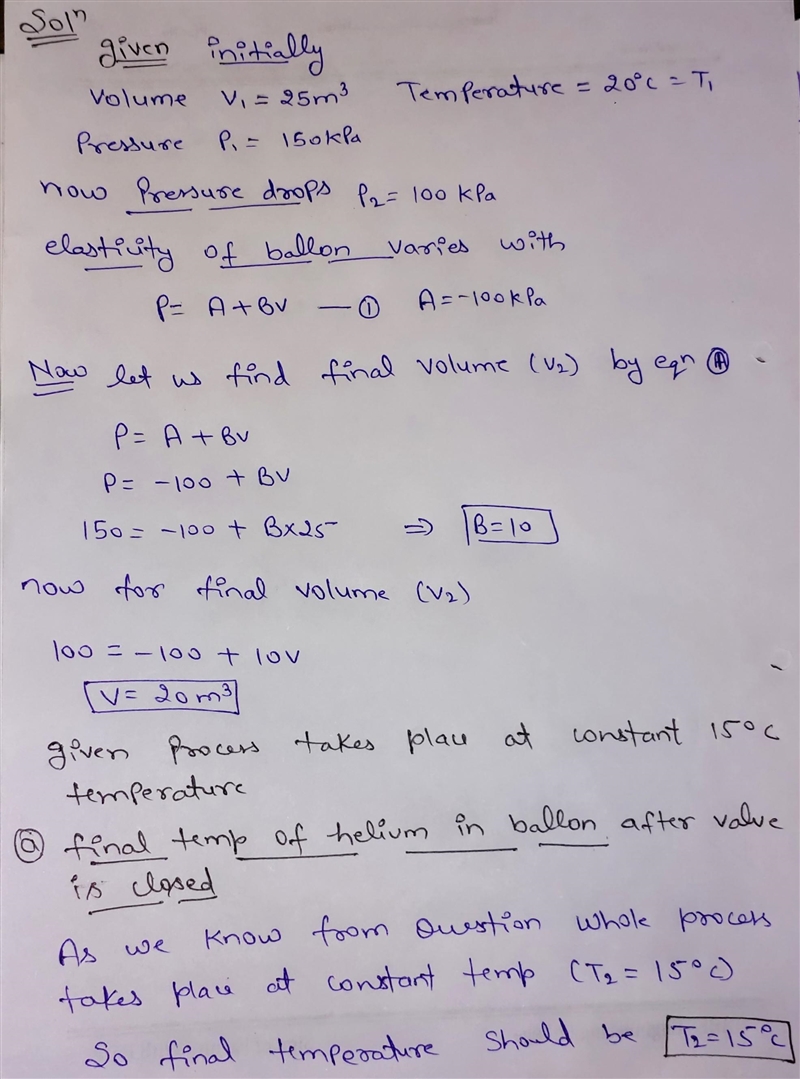 Solⁿ
given initially
Volume V₁ = 25m³ Temperature = 20°C = T₁
Pressure P₁ = 150kPa
now Pressure drops P₂ = 100 kPa
elasticity of ballon varies with
P = A + BV — ① A = -100kPa
Now let us find final volume (V₂) by eqn Ⓐ
P = A + BV
P = -100 + BV
150 = -100 + B×25 ⇒ B=10
now for final volume (V₂)
100 = -100 + 10V
V = 20 m³
given Process takes place at constant 15°C
temperature
ⓐ final temp of helium in ballon after valve
is closed
As we know from Question whole process
takes place at constant temp (T₂ = 15°C)
So final temperature should be T₂=15°C